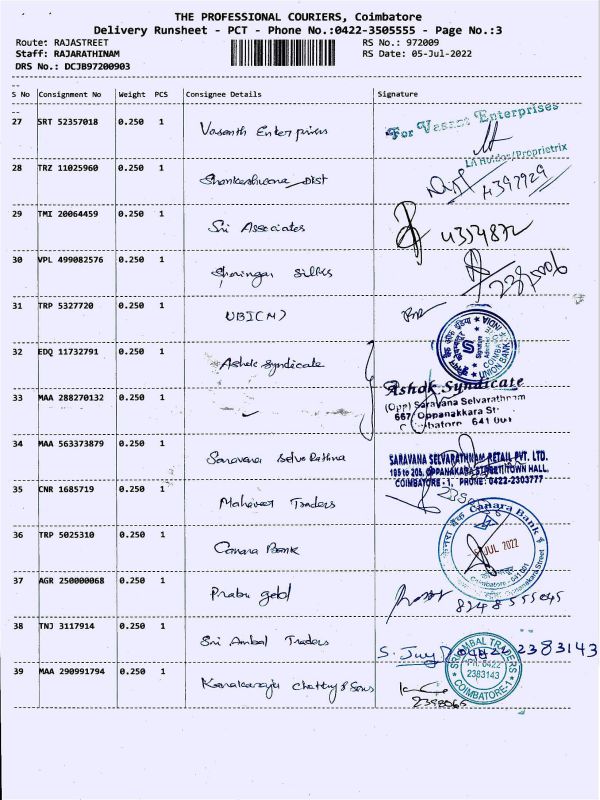 THE PROFESSIONAL COURIERS, Coimbatore
Delivery Runsheet - PCT - Phone No.:0422-3505555 - Page No.:3
Route: RAJASTREET RS No.: 972009
Staff: RAJARATHINAM RS Date: 05-Jul-2022
DRS No.: DCJB97200903
S No Consignment No Weight PCS Consignee Details Signature
27 SRT 52357018 0.250 1 Vasanth Enterprises For Vasant Enterprises
Proprietrix
28 TRZ 11025960 0.250 1 Dist 4397929
29 TMI 20064459 0.250 1 Sri Associates 4354872
30 VPL 499082576 0.250 1 Silks
31 TRP 5327720 0.250 1 UBI(N)
UNION BANK
32 EDQ 11732791 0.250 1 Ashok Syndicate
Ashok Syndicate
33 MAA 288270132 0.250 1 (Opp) Saravana Selvarathnam
667, Oppanakkara St
641 001
34 MAA 563373879 0.250 1 Saravana Selva Rathna SARAVANA SELVARATHNAM RETAIL PVT. LTD.
195 to 205, OPPANAKARA STREET, TOWN HALL,
COIMBATORE - 1, PHONE: 0422-2303777
35 CNR 1685719 0.250 1 Mahaveer Traders
केनरा बैंक Canara Bank
36 TRP 5025310 0.250 1 Canara Bank JUL 2022
Coimbatore - 641 001
Oppanakara Street
37 AGR 250000068 0.250 1 Prabu gold 8248555045
38 TNJ 3117914 0.250 1 Sri Ambal Traders 0422 2383143
SRI AMBAL TRADERS
PH: 0422
2383143
COIMBATORE-1
39 MAA 290991794 0.250 1 Kanakaraju Chetty & Sons